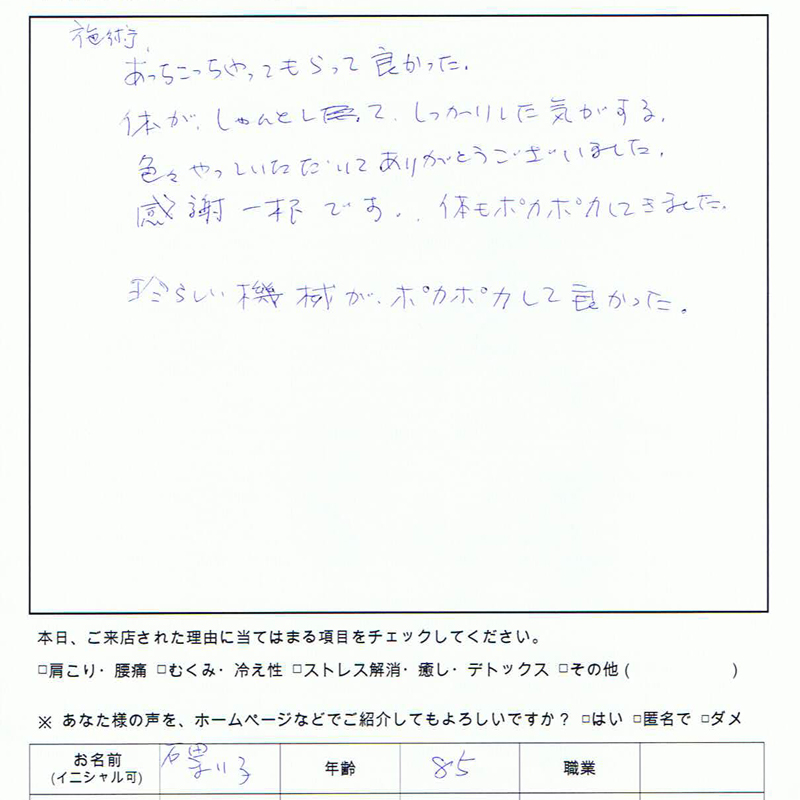 施術、
あっちこっちやってもらって良かった。
体が、しゃんとして、しっかりした気がする。
色々やっていただいてありがとうございました。
感謝一杯です。、体もポカポカしてきました。
珍らしい機械が、ポカポカして良かった。
本日、ご来店された理由に当てはまる項目をチェックしてください。
□肩こり・腰痛 □むくみ・冷え性 □ストレス解消・癒し・デトックス □その他 ( )
※ あなた様の声を、ホームページなどでご紹介してもよろしいですか？ □はい □匿名で □ダメ
お名前 年齢 85 職業
(イニシャル可)